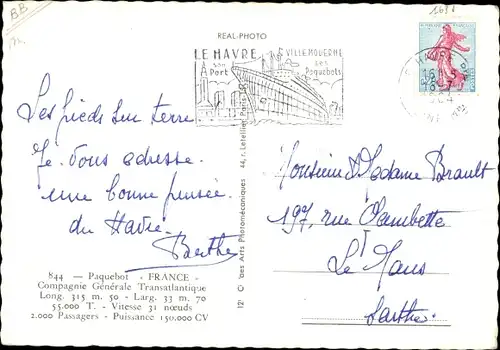 BB.
REAL-PHOTO
LE HAVRE
son
Port
VILLE MODERNE
ses
Paquebots
Les pieds sur terre
Je vous adresse
une bonne pensée
du Havre
Berthe
Monsieur & Madame Brault
197, rue Gambetta
Le Mans
Sarthe
844 — Paquebot - FRANCE -
Compagnie Générale Transatlantique
Long. 315 m. 50 - Larg. 33 m. 70
55.000 T. - Vitesse 31 nœuds
2.000 Passagers - Puissance 150.000 CV
des Arts Photomécaniques 44, r. Letellier Paris